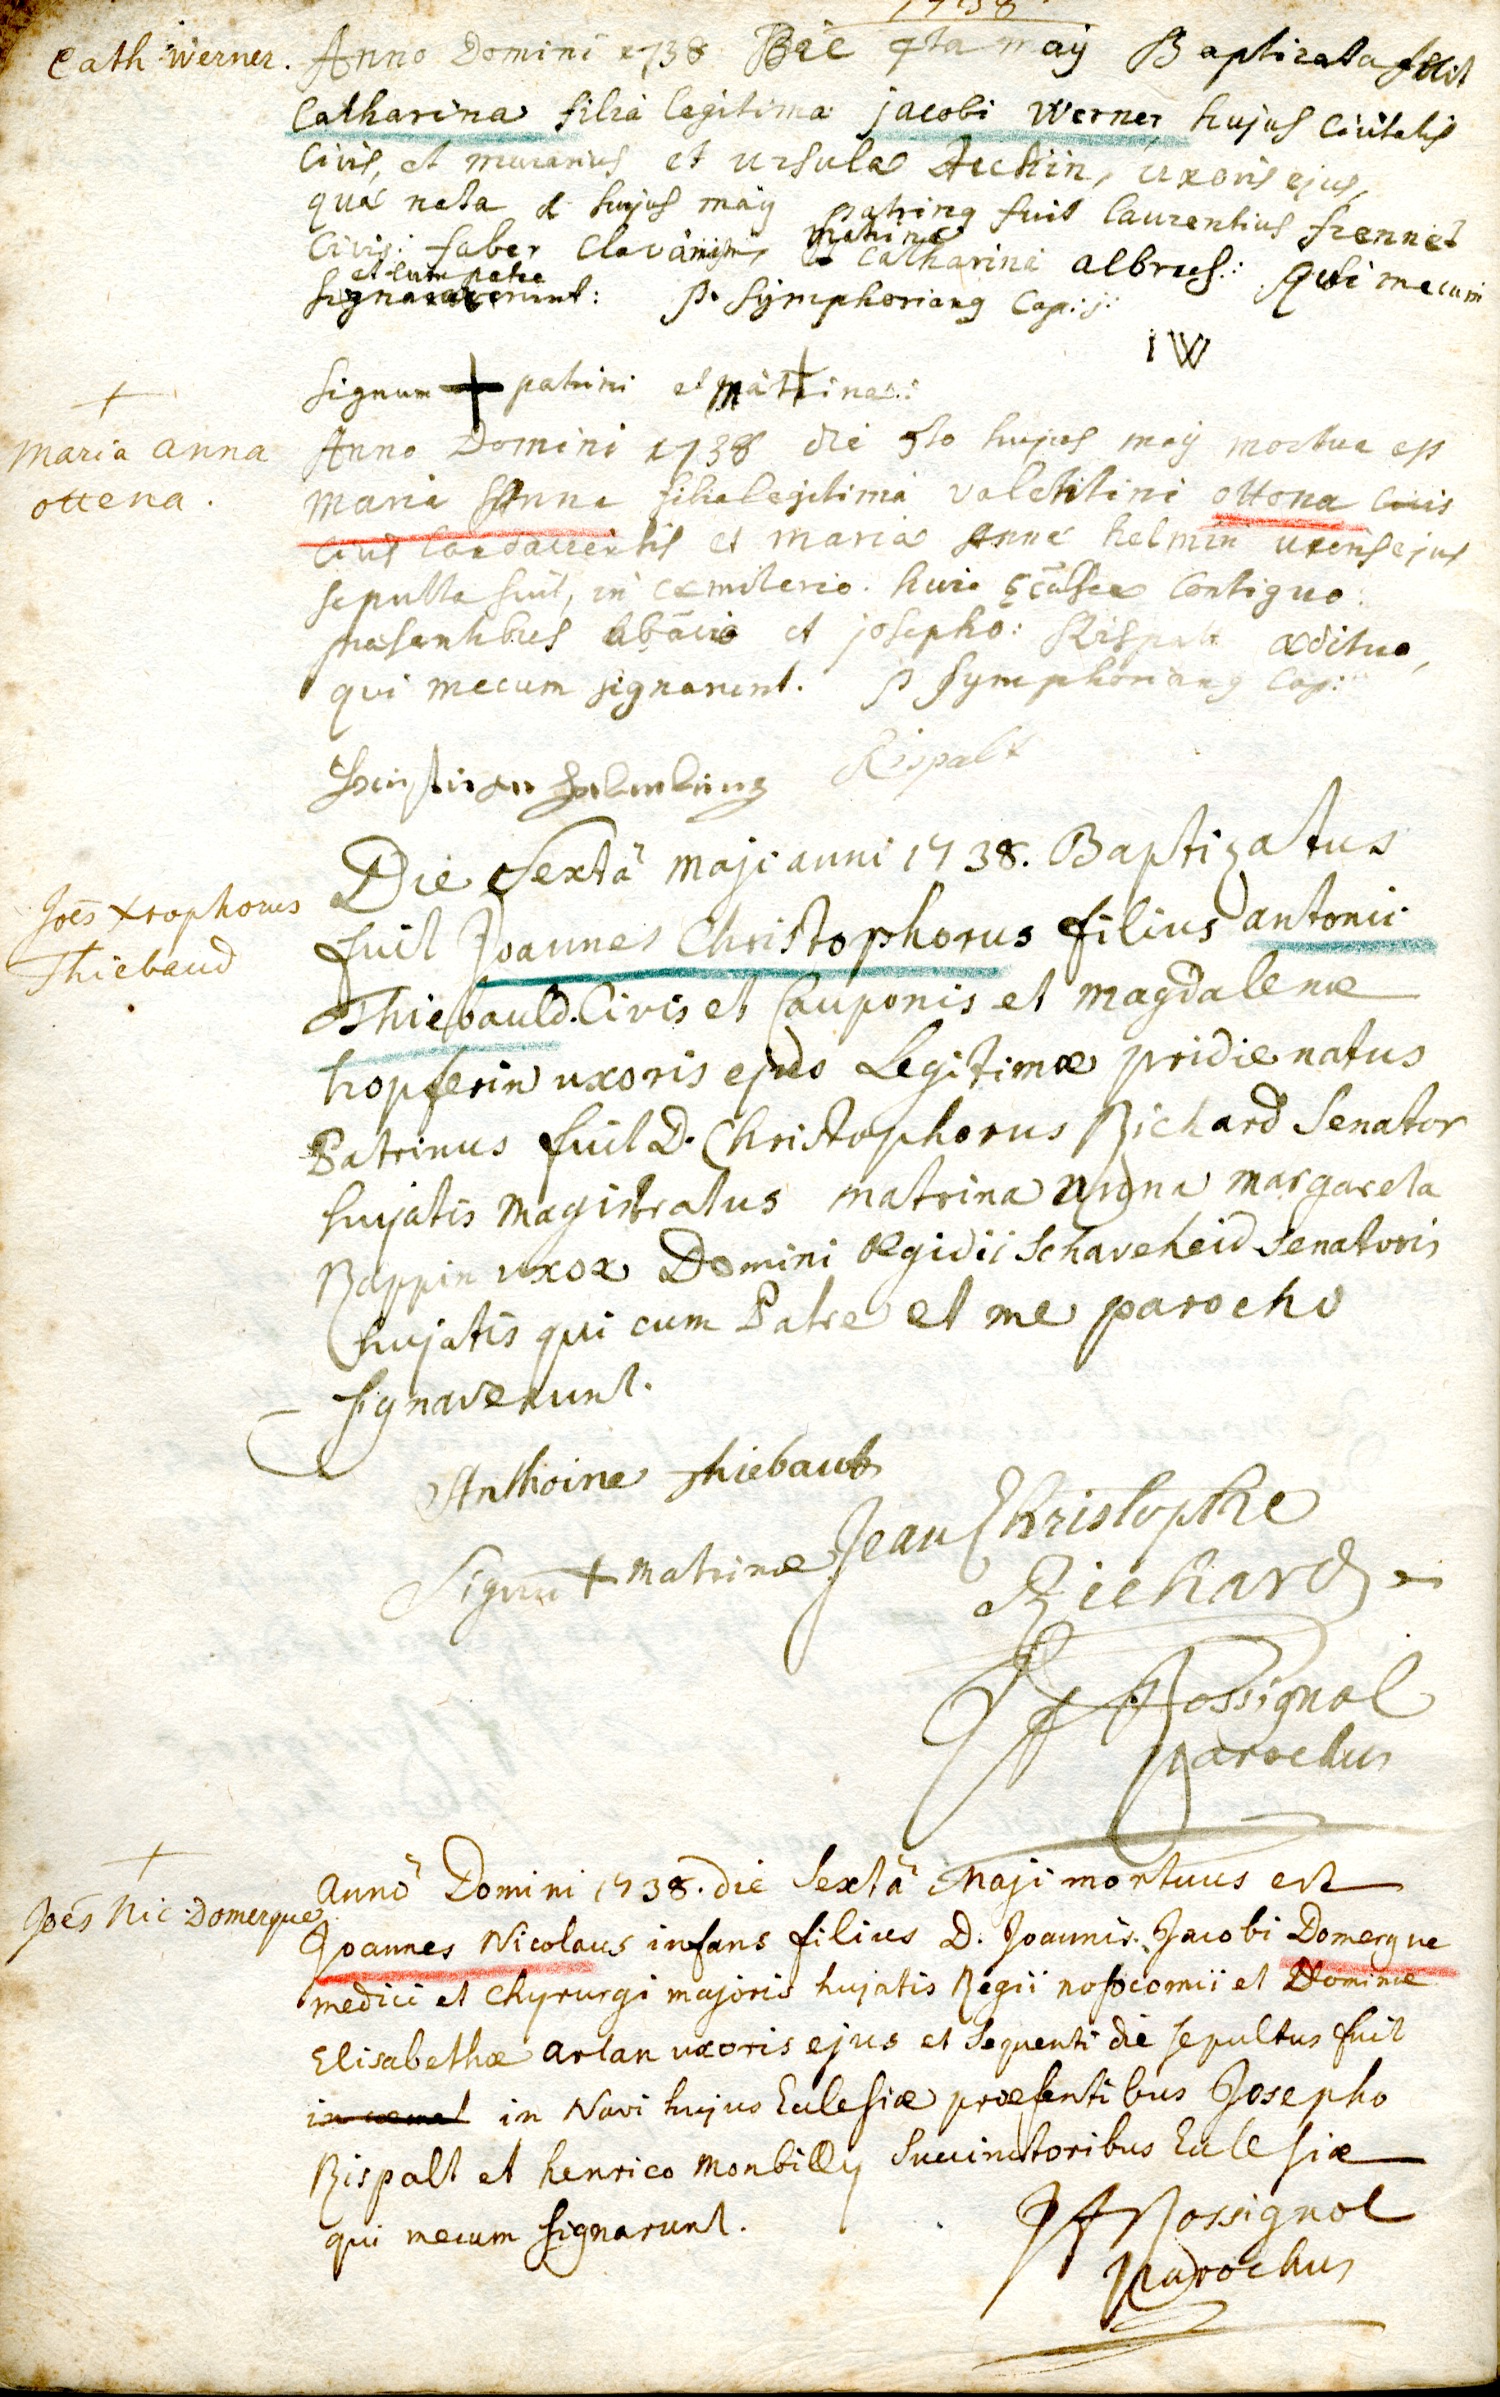 1738.
Cath: Werner.
Anno Domini 1738 Die 4ta may Baptizata fuit
Catharina filia legitima jacobi Werner hujus Civitatis
Civis, et murarius et ursula uxoris ejus,
quae nata hujus may patring fuit laurentius frennet
Civis: faber matrina Catharina albrus.: qui mecum
et cum patre
signaverunt: P. Symphoriang Cap:
IW
Signum + patrini et matrinae.:
+
Maria anna
ottena.
Anno Domini 1738 die 5to hujus may mortua est
maria Anna filia legitima valentini ottona civis
et maria Anna helmin uxoris ejus
sepulta fuit, in caemiterio huic Contiguo:
praesentibus et josepho: Rispalt aedituo,
qui mecum signarunt. P Symphoriang Cap:
Rispalt
Joēs Xrophorus
Thiebaud
Die Sextâ Maji anni 1738. Baptizatus
fuit Joannes Christophorus filius antonii
Thiebauld. Civis et Cauponis et Magdalenæ
hopferin uxoris ejus Legitimæ pridie natus
Patrinus fuit D. Christophorus Richard Senator
hujatis Magistratus matrina margareta
Rappin uxor Domini Ægidii Schaveheid Senatoris
hujatis qui cum Patre et me parocho
signaverunt.
Anthoine Thiebaut
Signū + Matrinæ
Jean Christophe
Richard
JF Rossignol
parochus
+
Joēs Nic: Domergue
Annô Domini 1738. die Sextâ Maji mortuus est
Joannes Nicolaus infans filius D. Joannis Jacobi Domergue
medici et Chyrurgi majoris hujatis Regii nosocomii et Dominæ
Elisabethæ Arlan uxoris ejus et Sequenti die sepultus fuit
in Navi hujus Eclesiæ præsentibus Josepho
Rispalt et henrico Monbilly Succinctoribus Eclesiæ
qui mecum signarunt.
JF Rossignol
Parochus